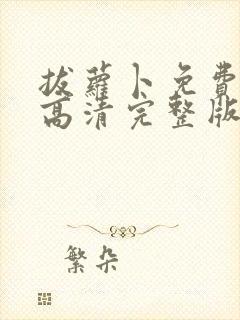 拔蘿卜免費
高清完整版
繁朵